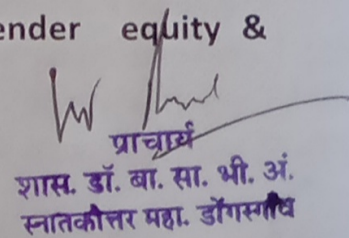 ender equity &
प्राचार्य
शास. डॉ. बा. सा. भी. अं.
स्नातकोत्तर महा. डोंगरगाँव